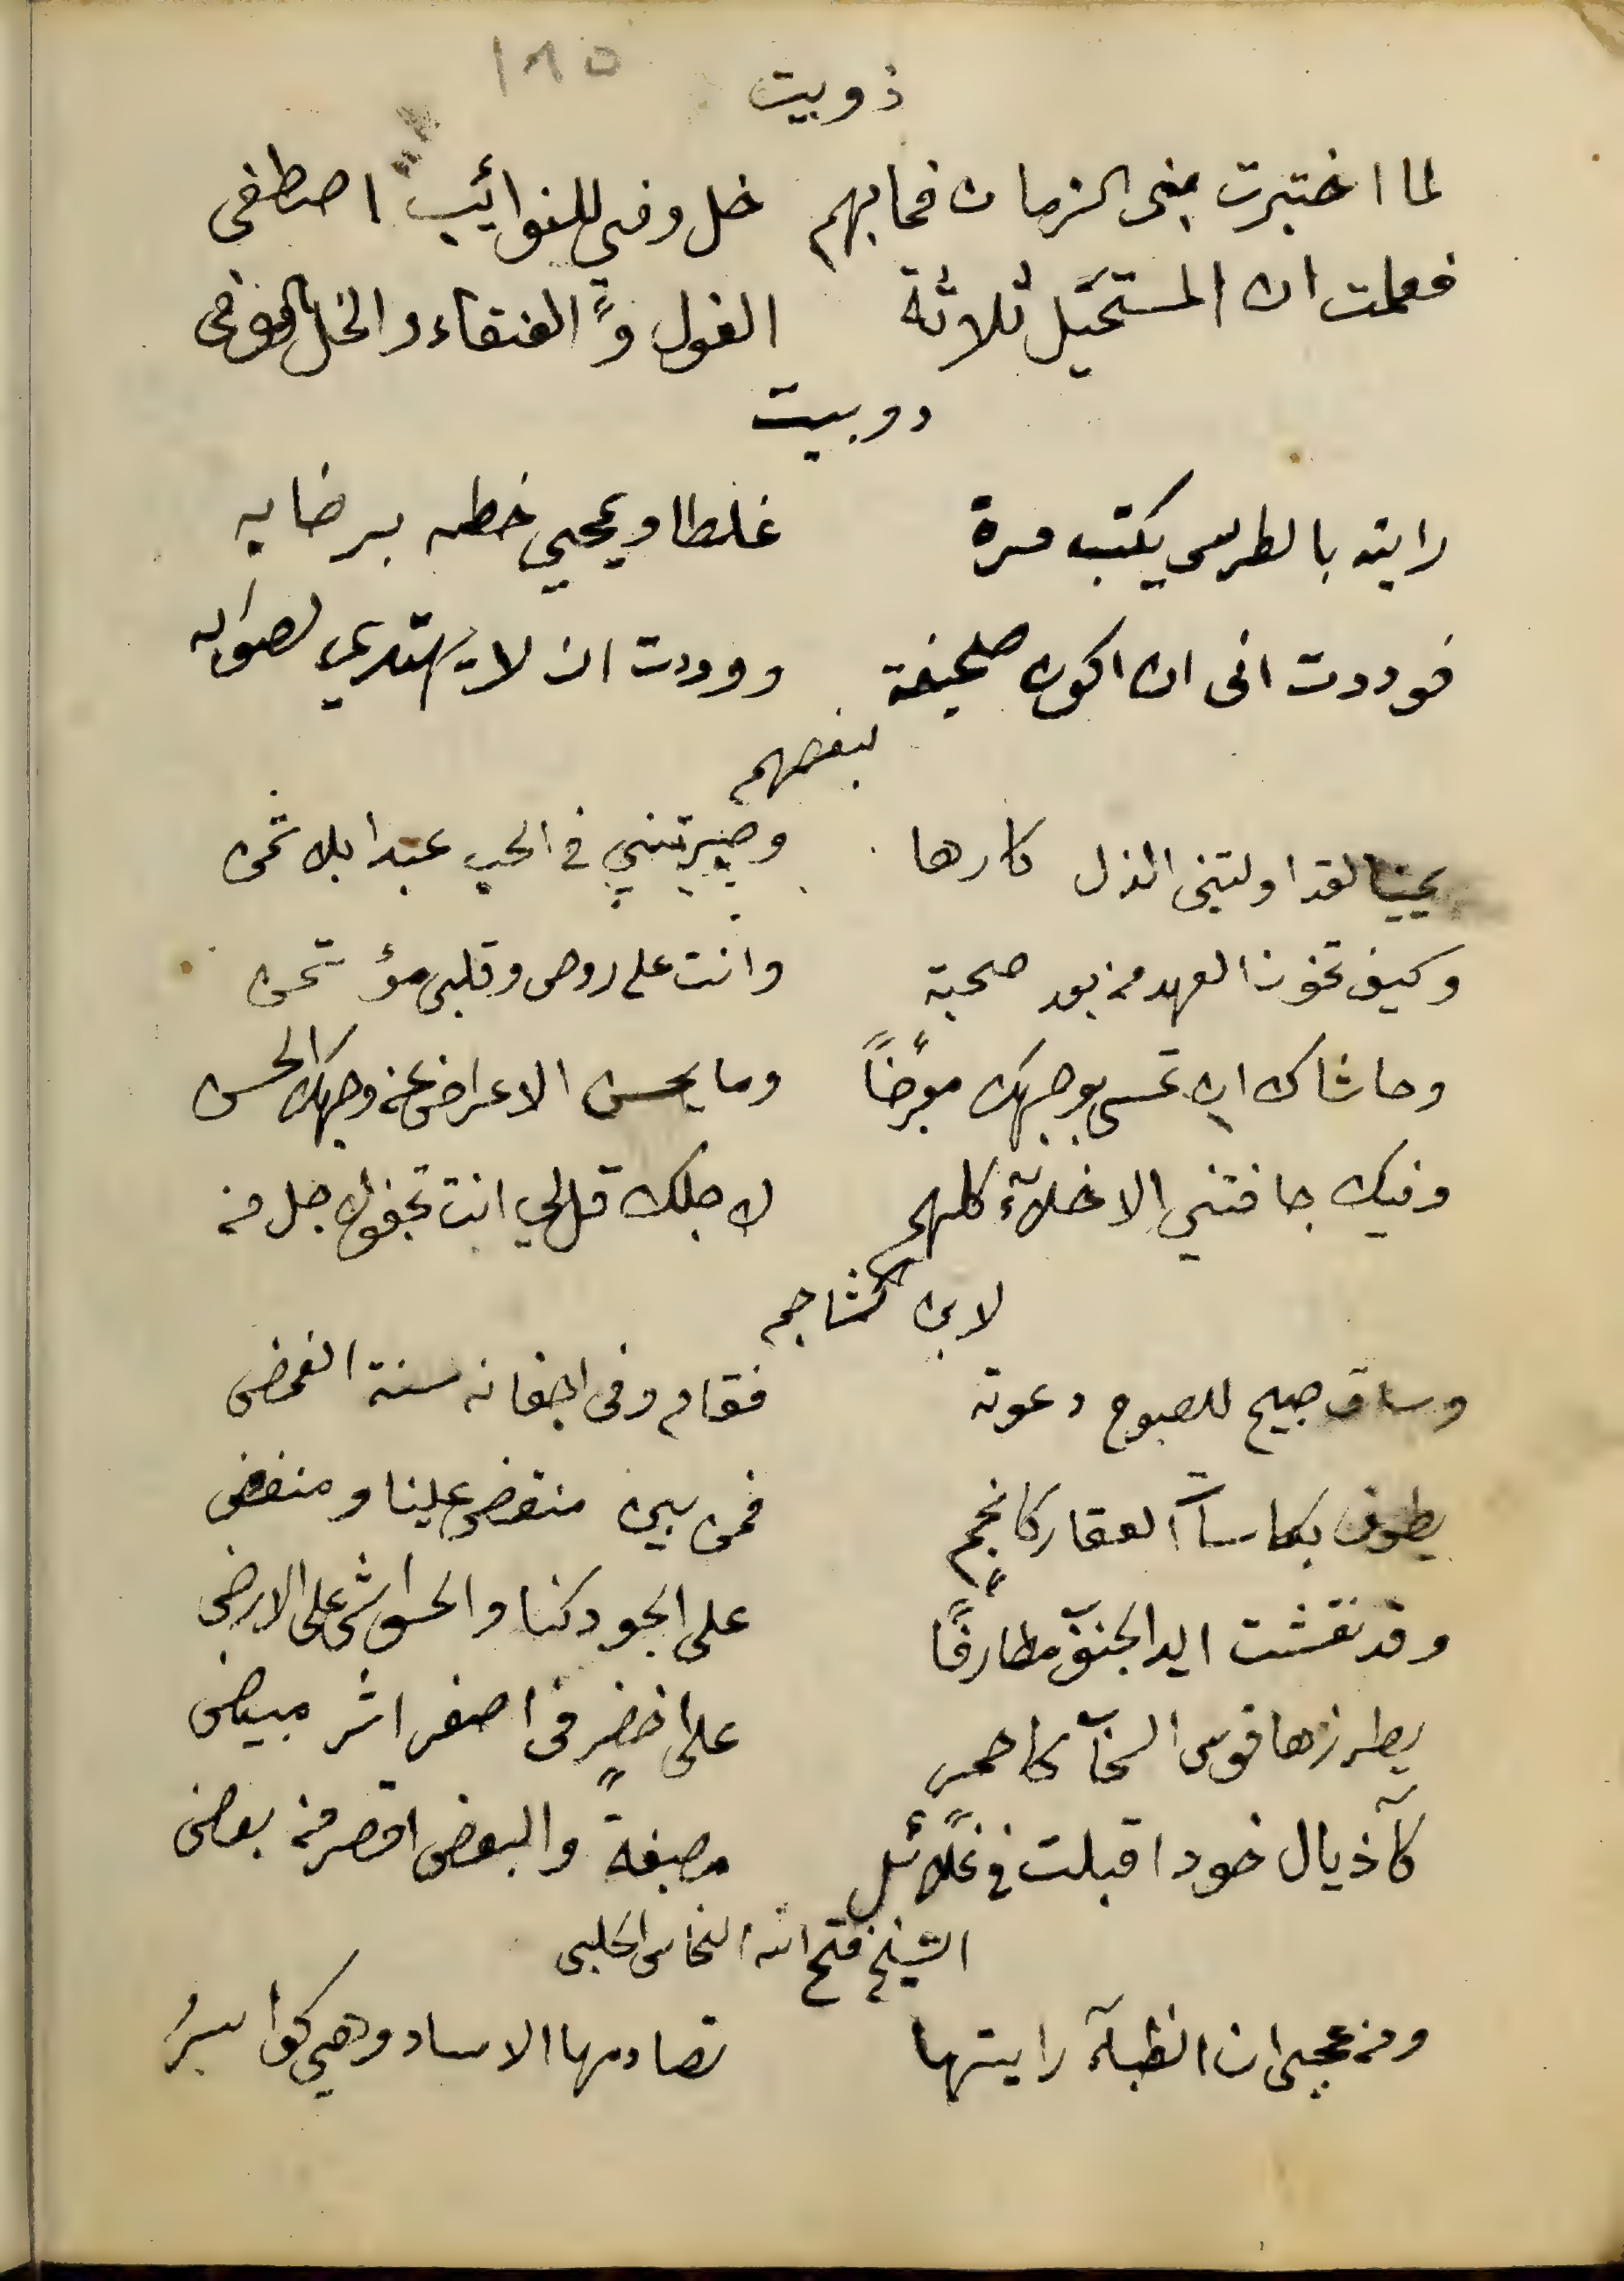 ١٨٥
ذوبيت
لما اختبرت بنى الزمان فما بهم خل وفي للنوائيب اصطفى
فعلمت ان المستحيل ثلاثة الغول و العنقاء والخل الوفى
دوبيت
رايته بالطرس يكتب مرة غلطا ويمحيي خطه برضابه
فوددت انى ان اكون صحيفة ووددت ان لا يهتدي لصوابه
لبعضهم
يمينا لقد اولتنى الذل كارها وصيرتنيي في الحب عبدا بلا ثمن
وكيف تخون العهد من بعد صحبة وانت على روحى وقلبى مؤتمن
وحاشاك ان تمسى بوجهك معرضاً وما يحسن الاعراض عن وجهك الحسن
وفيك جافتني الاخلآء كلهم لاجلك قل لي انت تجفو لاجل من
لابن كشاجم
وساق صبيح للصبوح دعوته فقام وفى اجفانه سنة الغمض
يطوف بكاسآت العقار كانجم فمن بين منقض علينا ومنفض
وقد نقشت ايد الجنوب مطارفًا على الجو دكنا والحواشى على الارض
يطرزها قوس السحآب كاحمر على اخضرٍ فى اصفر اثر مبيض
كآذيال خود اقبلت في غلائل مصبغة والبعض اقصر من بعض
الشيخ فتح الله النحاس الحلبى
ومن عجبى ان الظبآء رايتها تصادمها الاساد وهي كواسرُ